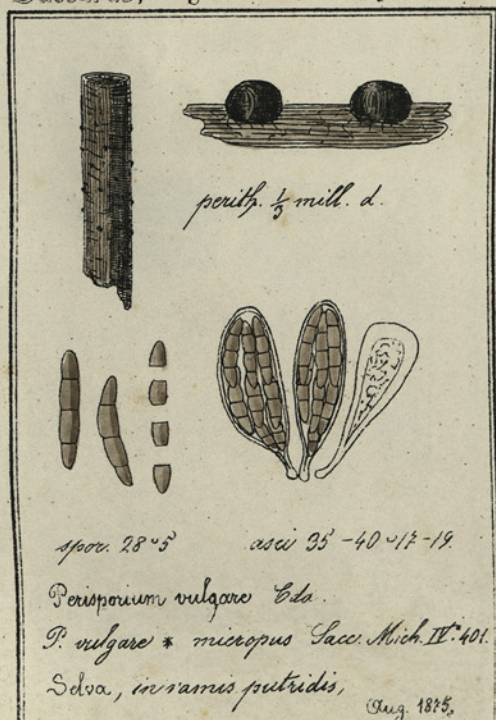 perith. 1/3 mill. d.
spor. 28 ᵕ 5
asci 35-40 ᵕ 17-19.
Perisporium vulgare Cda.
P. vulgare * micropus Sacc. Mich. IV. 401.
Selva, in ramis putridis,
Aug. 1875.